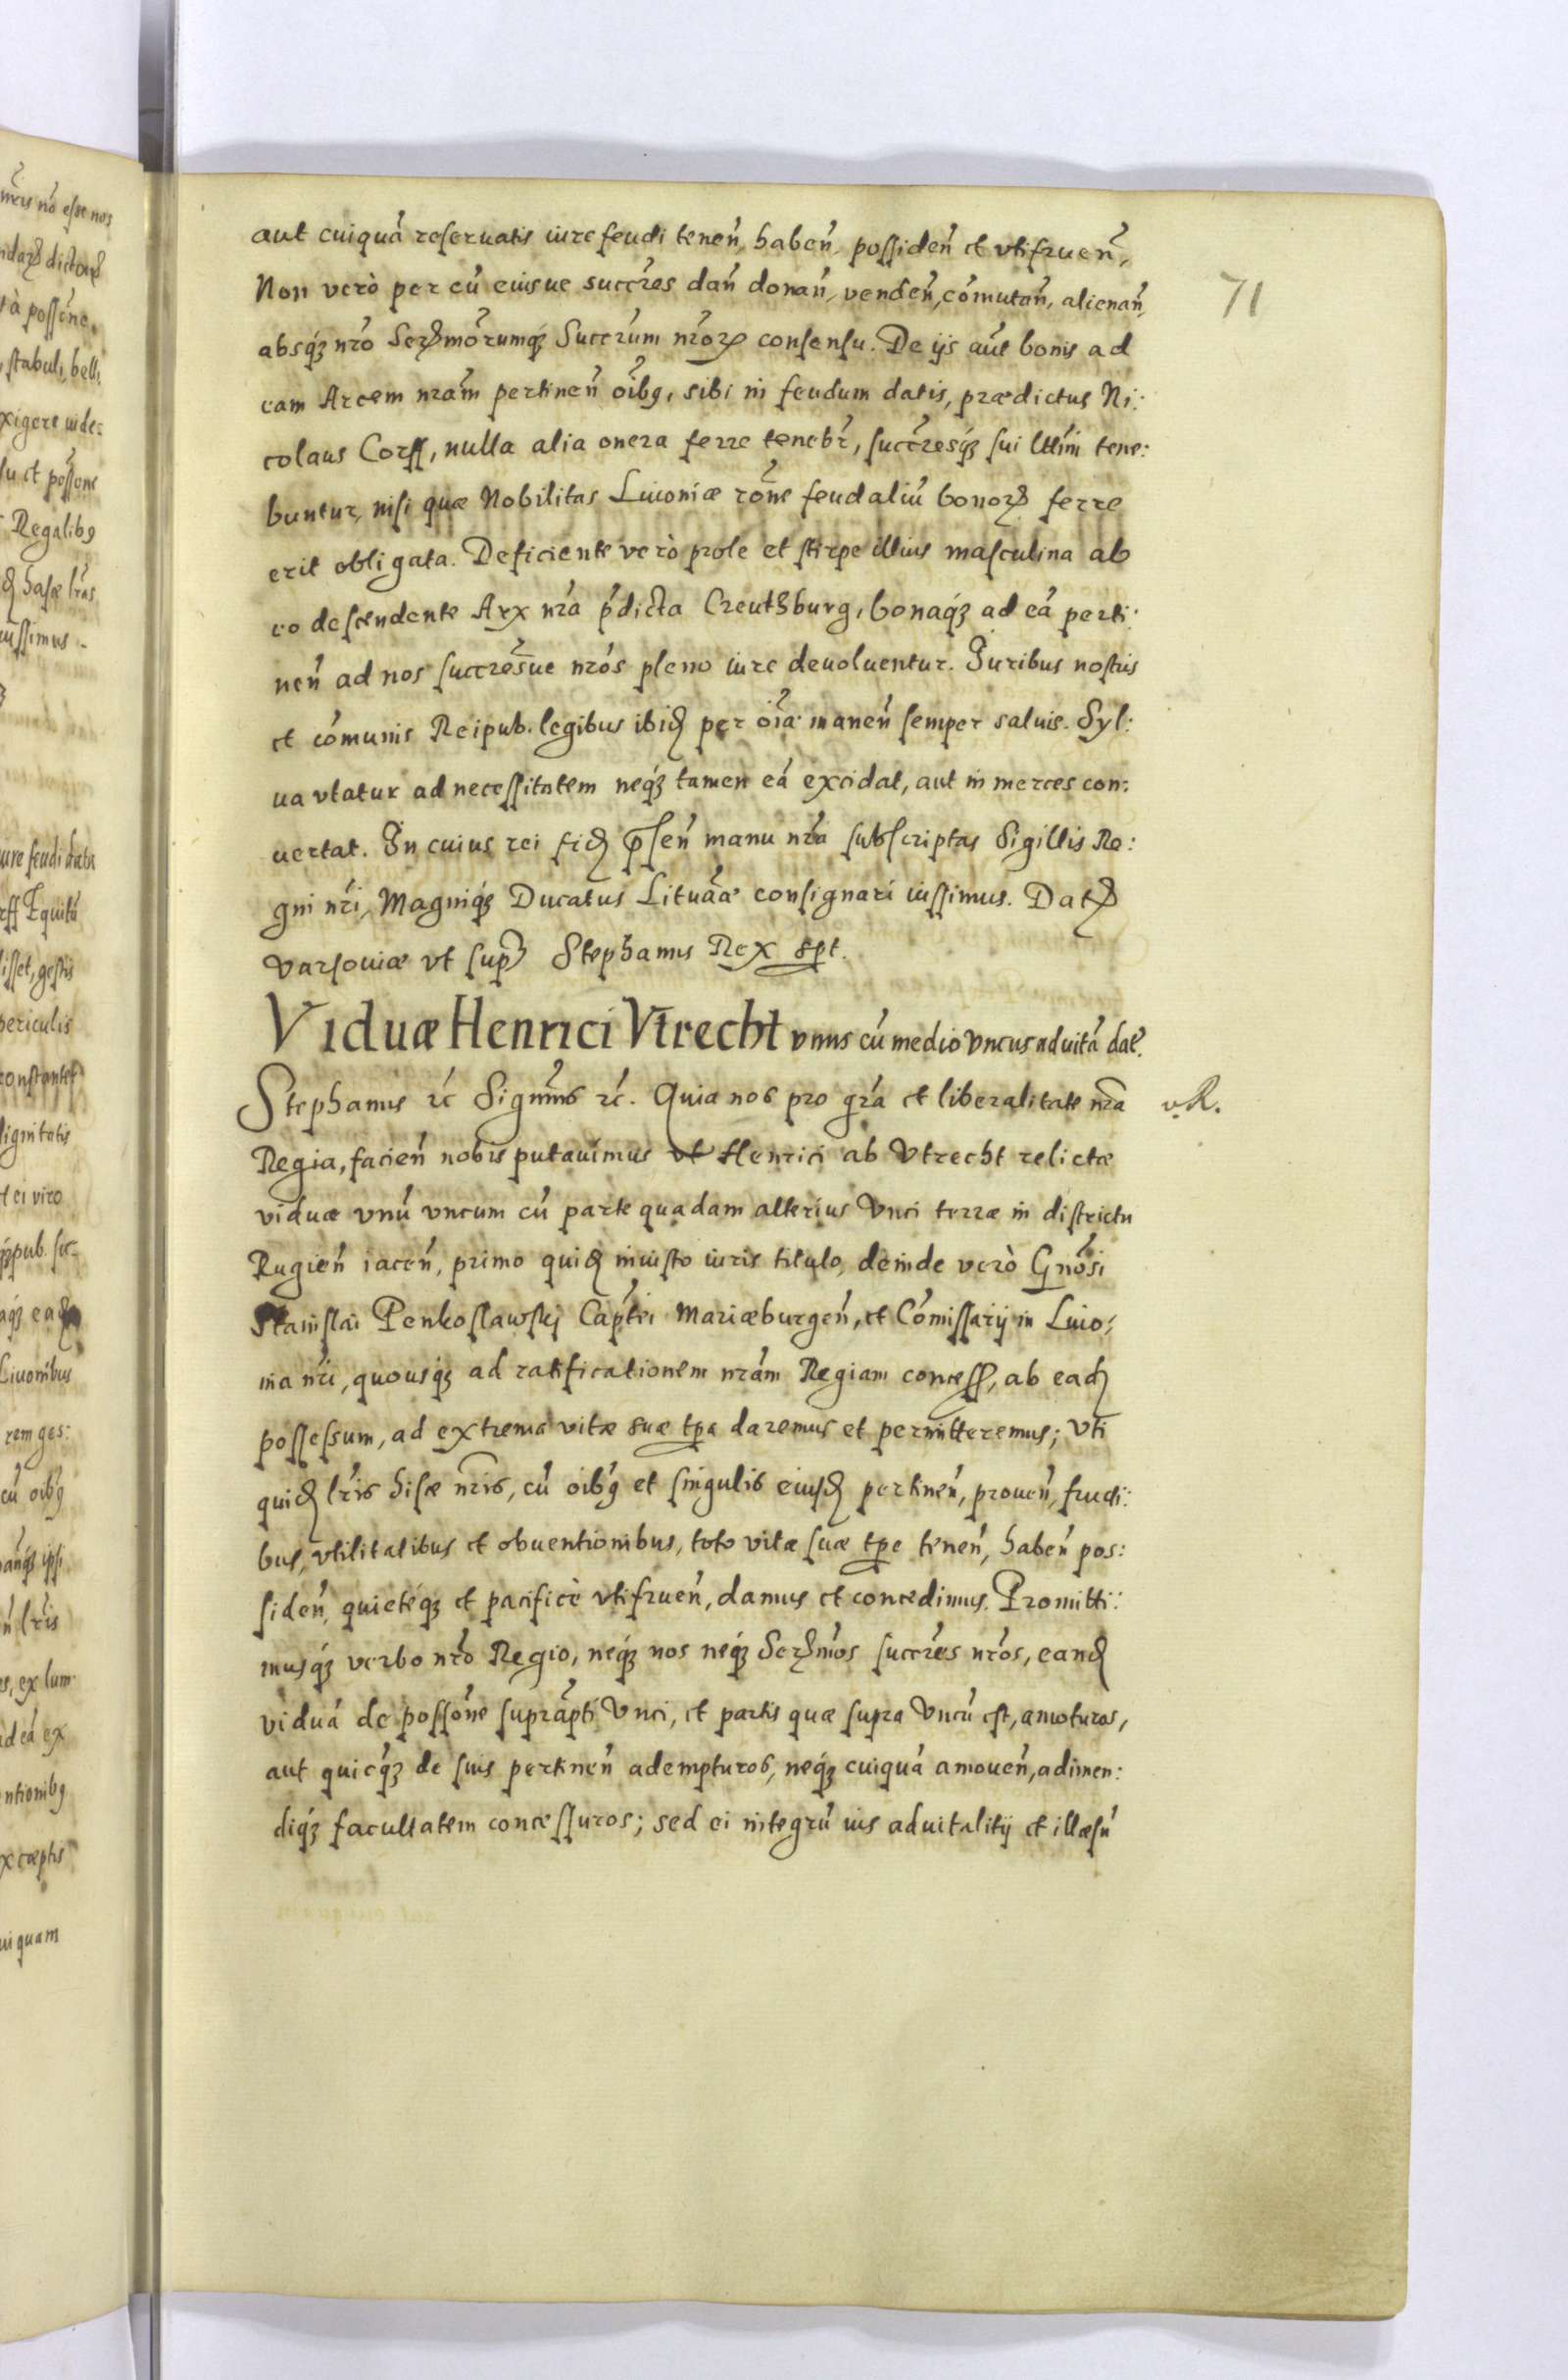 aut cuiquā reseruatis iure feudi tenen̄, haben̄, possiden̄ et vtifruen̄,
Non verò per eū eiusue succr̄es dan̄ donan̄, venden̄, cōmutan̄, alienan̄,
absq3 nr̄o Serꝫmōrumq3 Succrūm nr̄oꝝ consensu. De ijs aūt bonis ad
eam Arcem nrām pertinen̄ oībꝯ, sibi in feudum datis, prædictus Ni:
colaus Corff, nulla alia onera ferre tenebr̄, succr̄esq3 sui lttīmi tene:
buntur, nisi quæ Nobilitas Liuoniæ rōne feudaliū bonoꝝ ferre
erit obligata. Deficiente verò prole et stirpe illius masculina ab
eo descendente Arx nrā p̄dicta Creutzburg, bonaq3 ad eā perti:
nen̄ ad nos succr̄esue nrōs pleno iure deuoluentur. Juribus nostris
et cōmunis Reipub. legibus ibiꝺ per oīa manen̄ semper saluis. Syl:
ua vtatur ad necessitatem neq3 tamen eā excidat, aut in merces con:
uertat. In cuius rei fiꝺ p̄sen̄ manu nrā subscriptas Sigillis Re:
gni nr̄i, Magniq3 Ducatus Lituāæ consignari iussimus. Datꝫ
Varsouiæ vt sup̄ Stephanus Rex spt.
Viduæ Henrici Vtrecht vnus cū medio Vncus aduitā dat̄.
Stephanus rc̄ Signm̄s rc̄. Quia nos pro grā et liberalitate nrā
v. R.
Regia, facien̄ nobis putauimus vt Henrici ab Vtrecht relictæ
viduæ vnū vncum cū parte quadam alterius Vnci terræ in districtu
Rugien̄ iacen̄, primo quiꝺ iniusto iuris titulo, deinde verò Gnōsi
Stanislai Penkoslawskj Cap̄tei Mariæburgen̄, et Cōmissarij in Liuo:
nia nr̄i, quousq3 ad ratificationem nrām Regiam concess̄, ab eaꝺ
possessum, ad extrema vitæ suæ tp̄a daremus et permitteremus; Vti
quiꝺ lr̄is hisce nr̄is, cū oībꝯ et singulis eiusꝺ pertinen̄, prouen̄, fructi:
bus, vtilitatibus et obuentionibus, toto vitæ suæ tp̄e tenen̄, haben̄ pos:
siden̄, quieteq3 et pacificè vtifruen̄, damus et concedimus. Promitti:
musq3 verbo nr̄o Regio, neq3 nos neq3 Serꝫmōs succr̄es nr̄os, eanꝺ
viduā de possōne suprāpti Vnci, et partis quæ supra Vncū est, amoturos,
aut quicq3 de suis pertinen̄ adempturos, neq3 cuiquā amouen̄, adimen:
diq3 facultatem concessuros; sed ei integrū ius aduitalitij et illæsū
71